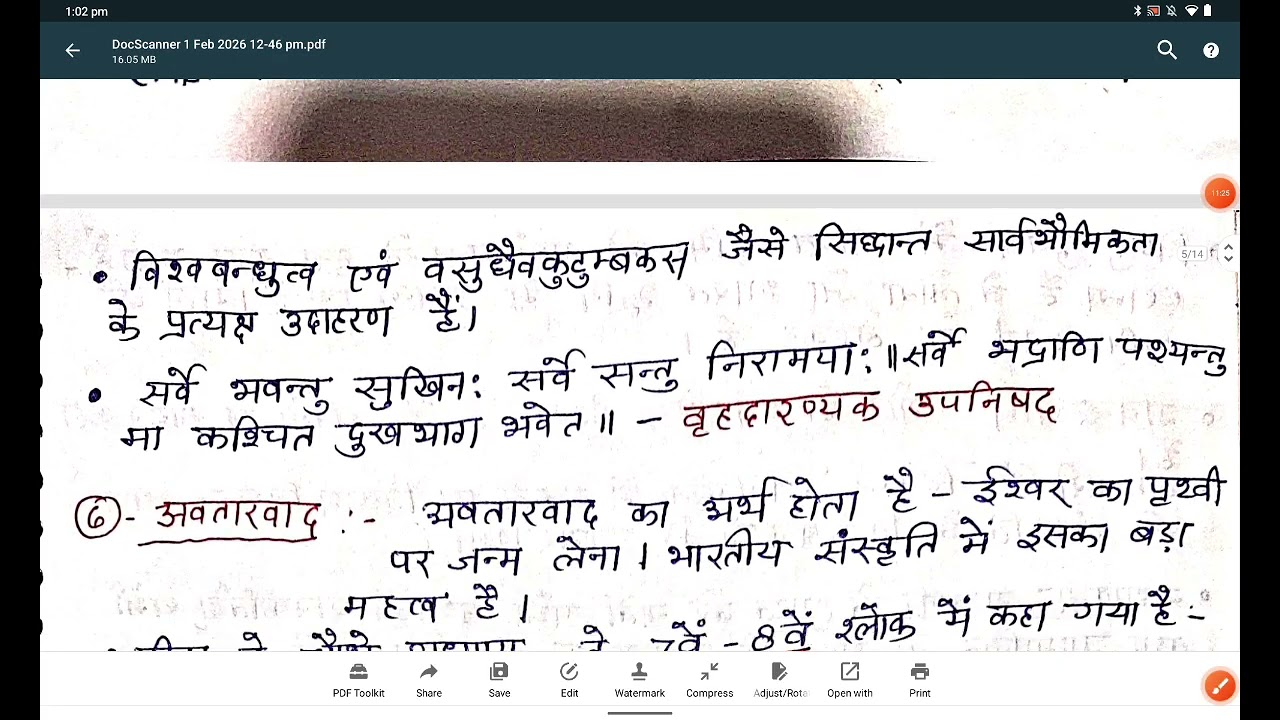 1:02 pm
DocScanner 1 Feb 2026 12-46 pm.pdf
16.05 MB
11:25
5/14
• विश्वबन्धुत्व एवं वसुधैवकुटुम्बकस जैसे सिद्धान्त सार्वभौमिकता
के प्रत्यक्ष उदाहरण हैं।
• सर्वे भवन्तु सुखिन: सर्वे सन्तु निरामया: ॥ सर्वे भद्राणि पश्यन्तु
मा कश्चित दुखभाग भवेत ॥ - वृहदारण्यक उपनिषद
⑥ - अवतारवाद :- अवतारवाद का अर्थ होता है - ईश्वर का पृथ्वी
पर जन्म लेना । भारतीय संस्कृति में इसका बड़ा
महत्व है ।
7वें - 8वें श्लोक में कहा गया है :-
PDF Toolkit Share Save Edit Watermark Compress Adjust/Rota Open with Print